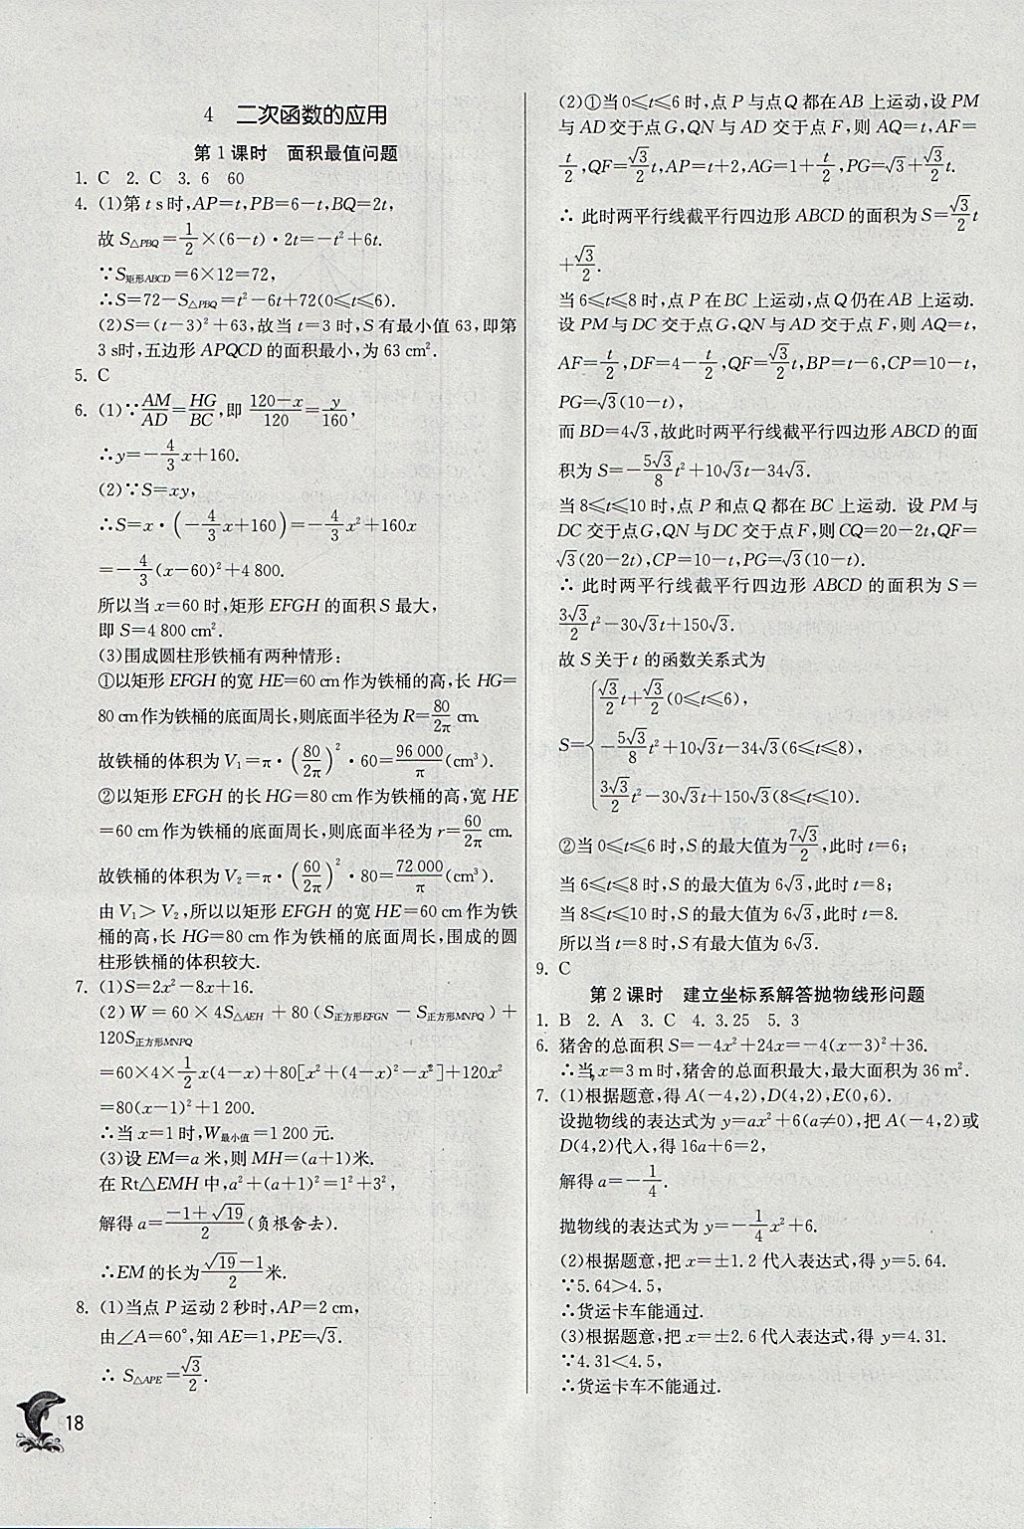 4 二次函数的应用
第1课时 面积最值问题
1. C 2. C 3. 6 60
4. (1)第 t s时,AP=t,PB=6-t,BQ=2t,
故 S△PBQ=1/2×(6-t)·2t=-t²+6t.
∵S矩形ABCD=6×12=72,
∴S=72-S△PBQ=t²-6t+72(0≤t≤6).
(2)S=(t-3)²+63,故当 t=3 时,S有最小值 63,即第
3 s时,五边形 APQCD 的面积最小,为 63 cm².
5. C
6. (1)∵AM/AD=HG/BC,即 (120-x)/120=y/160,
∴y=-4/3x+160.
(2)∵S=xy,
∴S=x·(-4/3x+160)=-4/3x²+160x
=-4/3(x-60)²+4 800.
所以当 x=60 时,矩形 EFGH 的面积 S 最大,
即 S=4 800 cm².
(3)围成圆柱形铁桶有两种情形:
①以矩形 EFGH 的宽 HE=60 cm作为铁桶的高,长 HG=
80 cm作为铁桶的底面周长,则底面半径为 R=80/2π cm.
故铁桶的体积为 V₁=π·(80/2π)²·60=96 000/π(cm³).
②以矩形 EFGH 的长 HG=80 cm作为铁桶的高,宽 HE
=60 cm作为铁桶的底面周长,则底面半径为 r=60/2π cm.
故铁桶的体积为 V₂=π·(60/2π)²·80=72 000/π(cm³).
由 V₁>V₂,所以以矩形 EFGH 的宽 HE=60 cm作为铁
桶的高,长 HG=80 cm作为铁桶的底面周长,围成的圆
柱形铁桶的体积较大.
7. (1)S=2x²-8x+16.
(2)W=60×4S△AEH+80(S正方形EFGN-S正方形MNPQ)+
120S正方形MNPQ
=60×4×1/2x(4-x)+80[x²+(4-x)²-x²]+120x²
=80(x-1)²+1 200.
∴当 x=1 时,W最小值=1 200 元.
(3)设 EM=a 米,则 MH=(a+1)米.
在 Rt△EMH 中,a²+(a+1)²=1²+3²,
解得 a=(-1+√19)/2(负根舍去).
∴EM 的长为(√19-1)/2米.
8. (1)当点 P 运动 2 秒时,AP=2 cm,
由∠A=60°,知 AE=1,PE=√3.
∴ S△APE=√3/2.
18
(2)①当 0≤t≤6 时,点 P 与点 Q 都在 AB 上运动,设 PM
与 AD 交于点 G,QN 与 AD 交于点 F,则 AQ=t,AF=
t/2,QF=√3/2t,AP=t+2,AG=1+t/2,PG=√3+√3/2t.
∴ 此时两平行线截平行四边形 ABCD 的面积为 S=√3/2t
+√3/2.
当 6≤t≤8 时,点 P 在 BC 上运动,点 Q 仍在 AB 上运动.
设 PM 与 DC 交于点 G,QN 与 AD 交于点 F,则 AQ=t,
AF=t/2,DF=4-t/2,QF=√3/2t,BP=t-6,CP=10-t,
PG=√3(10-t),
而 BD=4√3,故此时两平行线截平行四边形 ABCD 的面
积为 S=-5√3/8t²+10√3t-34√3.
当 8≤t≤10 时,点 P 和点 Q 都在 BC 上运动. 设 PM 与
DC 交于点 G,QN 与 DC 交于点 F,则 CQ=20-2t,QF=
√3(20-2t),CP=10-t,PG=√3(10-t).
∴ 此时两平行线截平行四边形 ABCD 的面积为 S=
3√3/2t²-30√3t+150√3.
故 S 关于 t 的函数关系式为
√3/2t+√3/2(0≤t≤6),
S={-5√3/8t²+10√3t-34√3(6≤t≤8),
3√3/2t²-30√3t+150√3(8≤t≤10).
②当 0≤t≤6 时,S 的最大值为7√3/2,此时 t=6;
当 6≤t≤8 时,S 的最大值为 6√3,此时 t=8;
当 8≤t≤10 时,S 的最大值为 6√3,此时 t=8.
所以当 t=8 时,S 有最大值为 6√3.
9. C
第2课时 建立坐标系解答抛物线形问题
1. B 2. A 3. C 4. 3.25 5. 3
6. 猪舍的总面积 S=-4x²+24x=-4(x-3)²+36.
∴当 x=3 m时,猪舍的总面积最大,最大面积为 36 m².
7. (1)根据题意,得 A(-4,2),D(4,2),E(0,6).
设抛物线的表达式为 y=ax²+6(a≠0),把 A(-4,2)或
D(4,2)代入,得 16a+6=2,
解得 a=-1/4.
抛物线的表达式为 y=-1/4x²+6.
(2)根据题意,把 x=±1.2 代入表达式,得 y=5.64.
∵5.64>4.5,
∴货运卡车能通过.
(3)根据题意,把 x=±2.6 代入表达式,得 y=4.31.
∵4.31<4.5,
∴货运卡车不能通过.